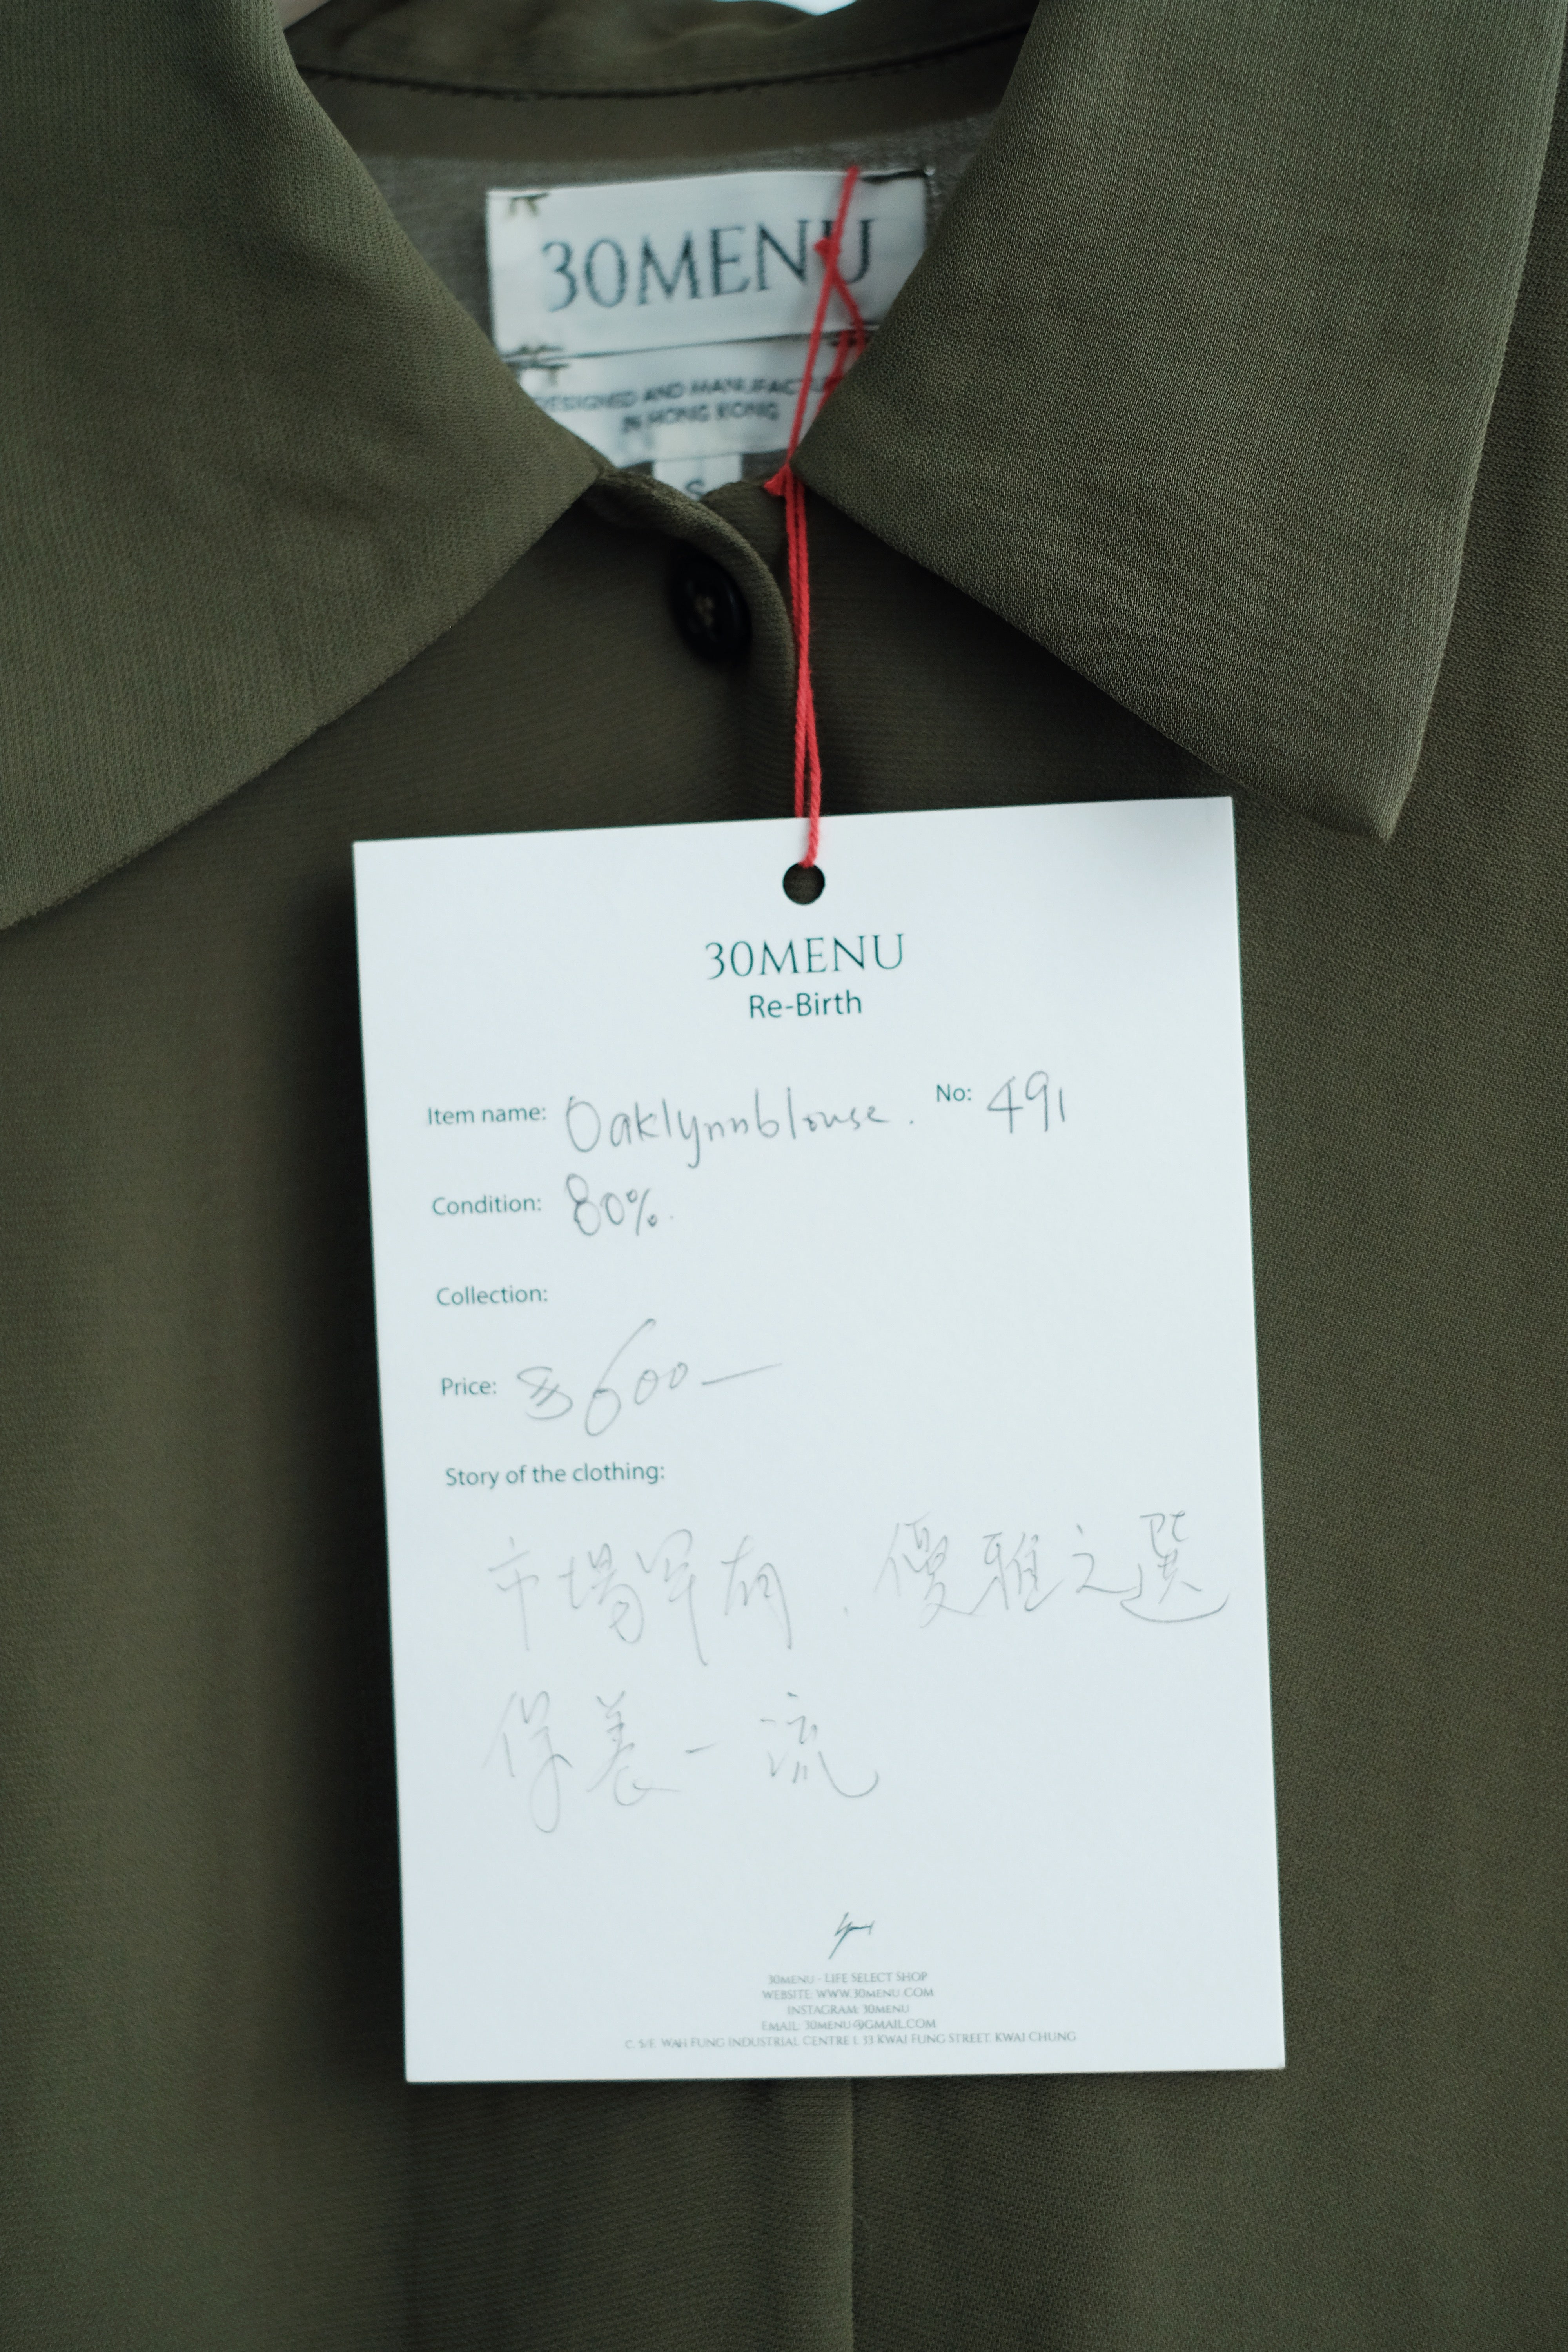 30MENU
DESIGNED AND MANUFACTU
IN HONG KONG
S
30MENU
Re-Birth
Item name: Oaklynnblouse. No: 491
Condition: 80%.
Collection:
Price: $600—
Story of the clothing:
市場罕有.優雅之選
保養一流
30MENU - LIFE SELECT SHOP
WEBSITE: WWW.30MENU.COM
INSTAGRAM: 30MENU
EMAIL: 30MENU@GMAIL.COM
C, 5/F, WAH FUNG INDUSTRIAL CENTRE 1, 33 KWAI FUNG STREET, KWAI CHUNG